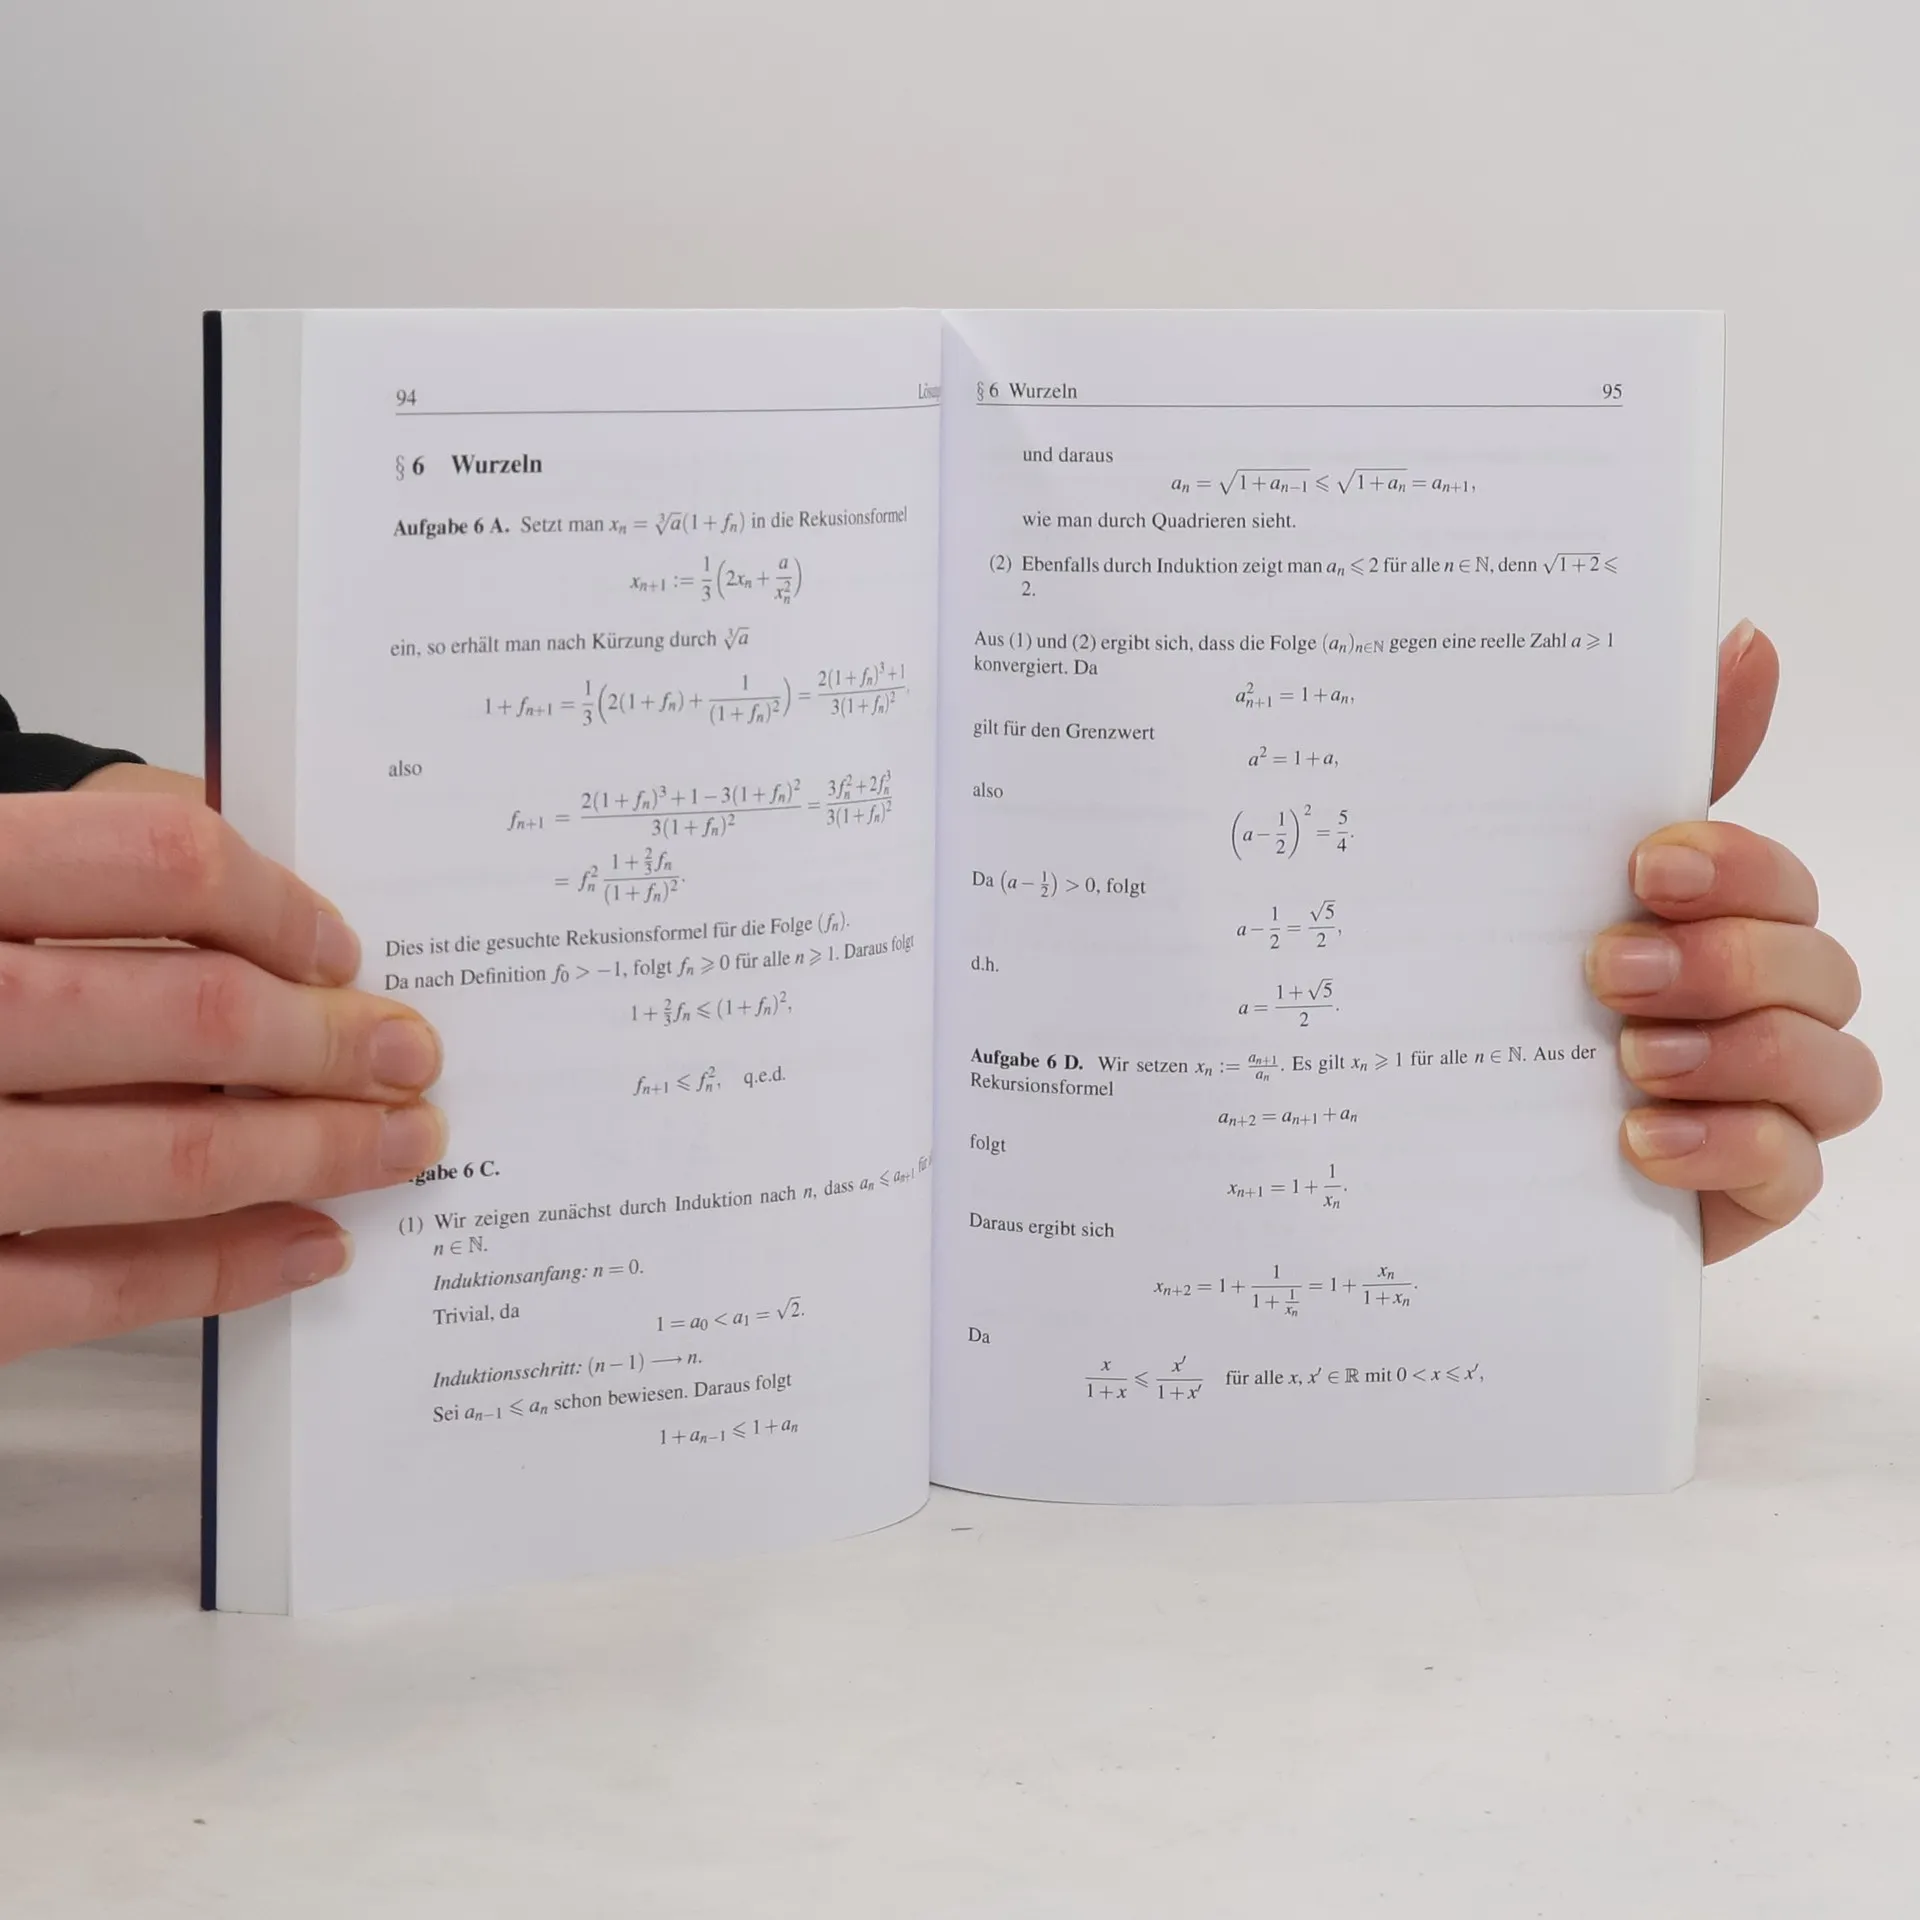 94
§ 6 Wurzeln
Aufgabe 6 A. Setzt man xₙ = ∛a(1 + fₙ) in die Rekusionsformel
xₙ₊₁ := 1/3 (2xₙ + a/xₙ²)
ein, so erhält man nach Kürzung durch ∛a
1 + fₙ₊₁ = 1/3 (2(1 + fₙ) + 1/(1 + fₙ)²) = (2(1 + fₙ)³ + 1)/(3(1 + fₙ)²),
also
fₙ₊₁ = (2(1 + fₙ)³ + 1 − 3(1 + fₙ)²)/(3(1 + fₙ)²) = (3fₙ² + 2fₙ³)/(3(1 + fₙ)²)
= fₙ² (1 + 2/3 fₙ)/(1 + fₙ)².
Dies ist die gesuchte Rekusionsformel für die Folge (fₙ).
Da nach Definition f₀ > −1, folgt fₙ ⩾ 0 für alle n ⩾ 1. Daraus folgt
1 + 2/3 fₙ ⩽ (1 + fₙ)²,
fₙ₊₁ ⩽ fₙ², q.e.d.
gabe 6 C.
(1) Wir zeigen zunächst durch Induktion nach n, dass aₙ ⩽ aₙ₊₁ für
n ∈ ℕ.
Induktionsanfang: n = 0.
Trivial, da
1 = a₀ < a₁ = √2.
Induktionsschritt: (n − 1) ⟶ n.
Sei aₙ₋₁ ⩽ aₙ schon bewiesen. Daraus folgt
1 + aₙ₋₁ ⩽ 1 + aₙ
§ 6 Wurzeln 95
und daraus
aₙ = √(1 + aₙ₋₁) ⩽ √(1 + aₙ) = aₙ₊₁,
wie man durch Quadrieren sieht.
(2) Ebenfalls durch Induktion zeigt man aₙ ⩽ 2 für alle n ∈ ℕ, denn √(1 + 2) ⩽
2.
Aus (1) und (2) ergibt sich, dass die Folge (aₙ)ₙ∈ℕ gegen eine reelle Zahl a ⩾ 1
konvergiert. Da
aₙ₊₁² = 1 + aₙ,
gilt für den Grenzwert
a² = 1 + a,
also
(a − 1/2)² = 5/4.
Da (a − 1/2) > 0, folgt
a − 1/2 = √5/2,
d.h.
a = (1 + √5)/2.
Aufgabe 6 D. Wir setzen xₙ := aₙ₊₁/aₙ. Es gilt xₙ ⩾ 1 für alle n ∈ ℕ. Aus der
Rekursionsformel
aₙ₊₂ = aₙ₊₁ + aₙ
folgt
xₙ₊₁ = 1 + 1/xₙ.
Daraus ergibt sich
xₙ₊₂ = 1 + 1/(1 + 1/xₙ) = 1 + xₙ/(1 + xₙ).
Da
x/(1 + x) ⩽ x′/(1 + x′) für alle x, x′ ∈ ℝ mit 0 < x ⩽ x′,